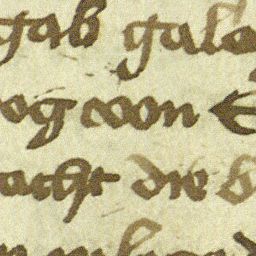 gab galo
og von E
acht die b